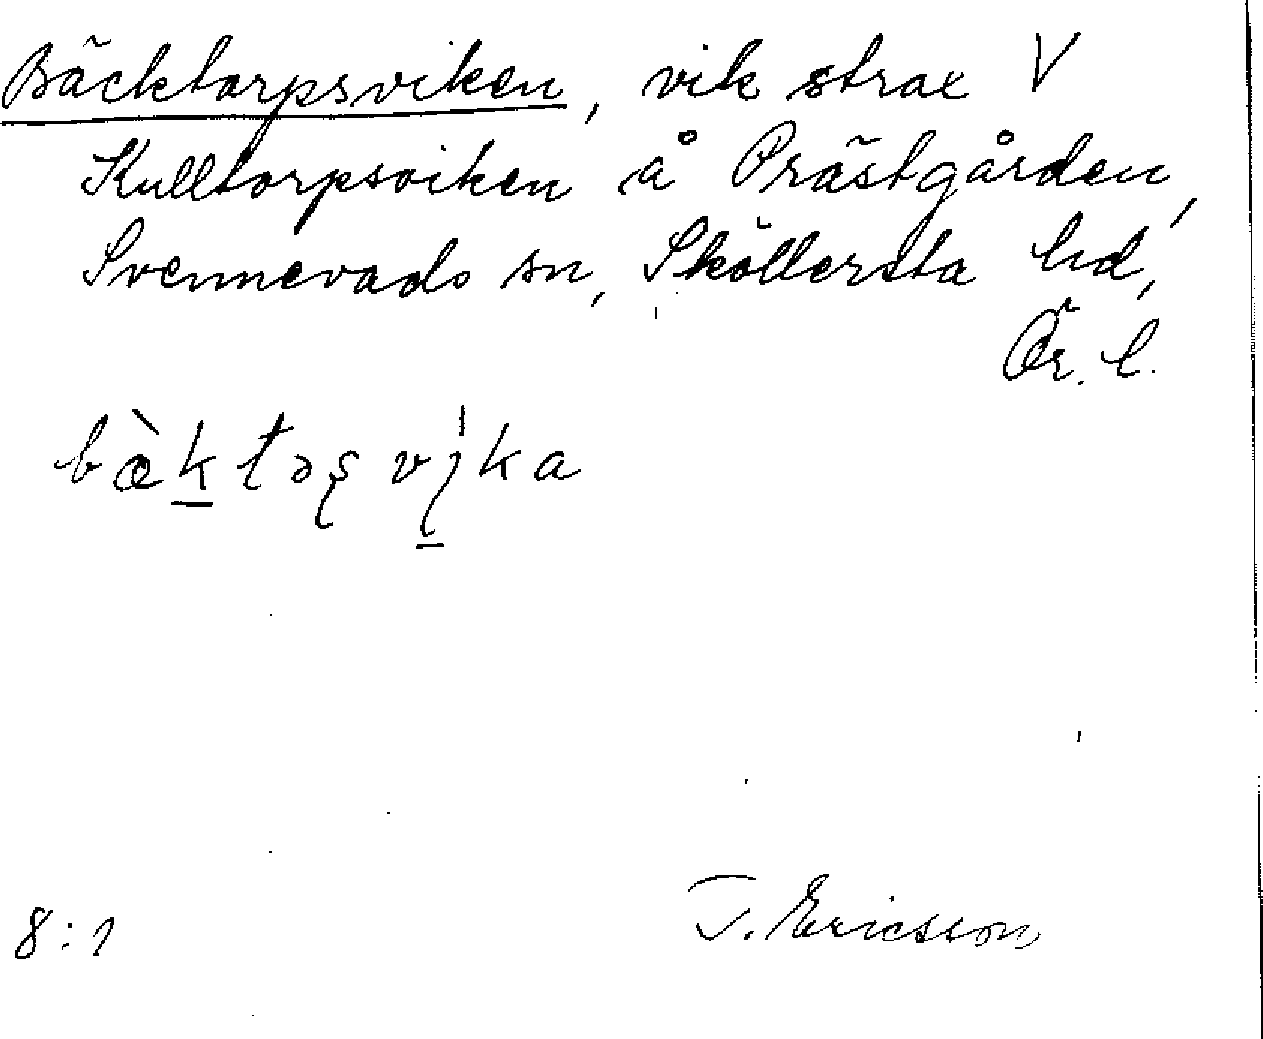 Bäcktorpsviken, vik strax V
Kulltorpsviken å Prästgården,
Svennevads sn, Sköllersta hd,
Ör. l.
bæ̀k̲təş vi̲̍ka
8:1
T. Ericsson